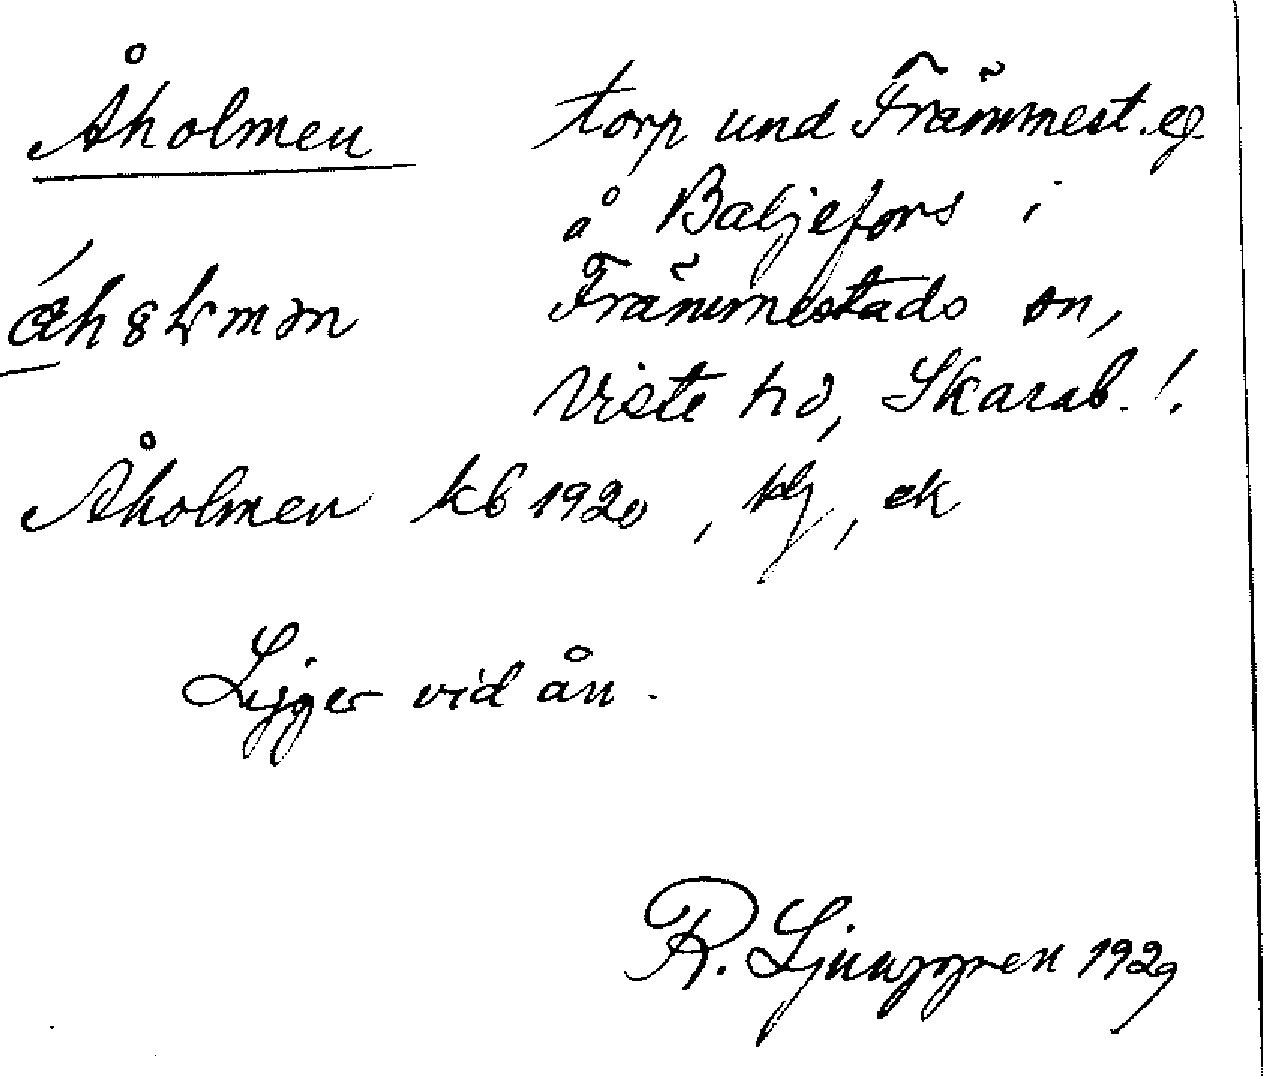 Åholmen torp und Främmest. eg
å Baljefors i
Främmestads sn,
Viste hd, Skarab. l.
Åholmen kb 1920, klj, ek
Ligger vid ån.
R. Ljunggren 1929